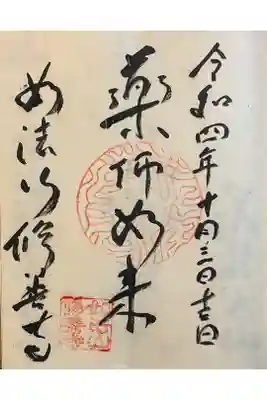 令和四年十月三日吉日
薬师如来
如法山修善寺